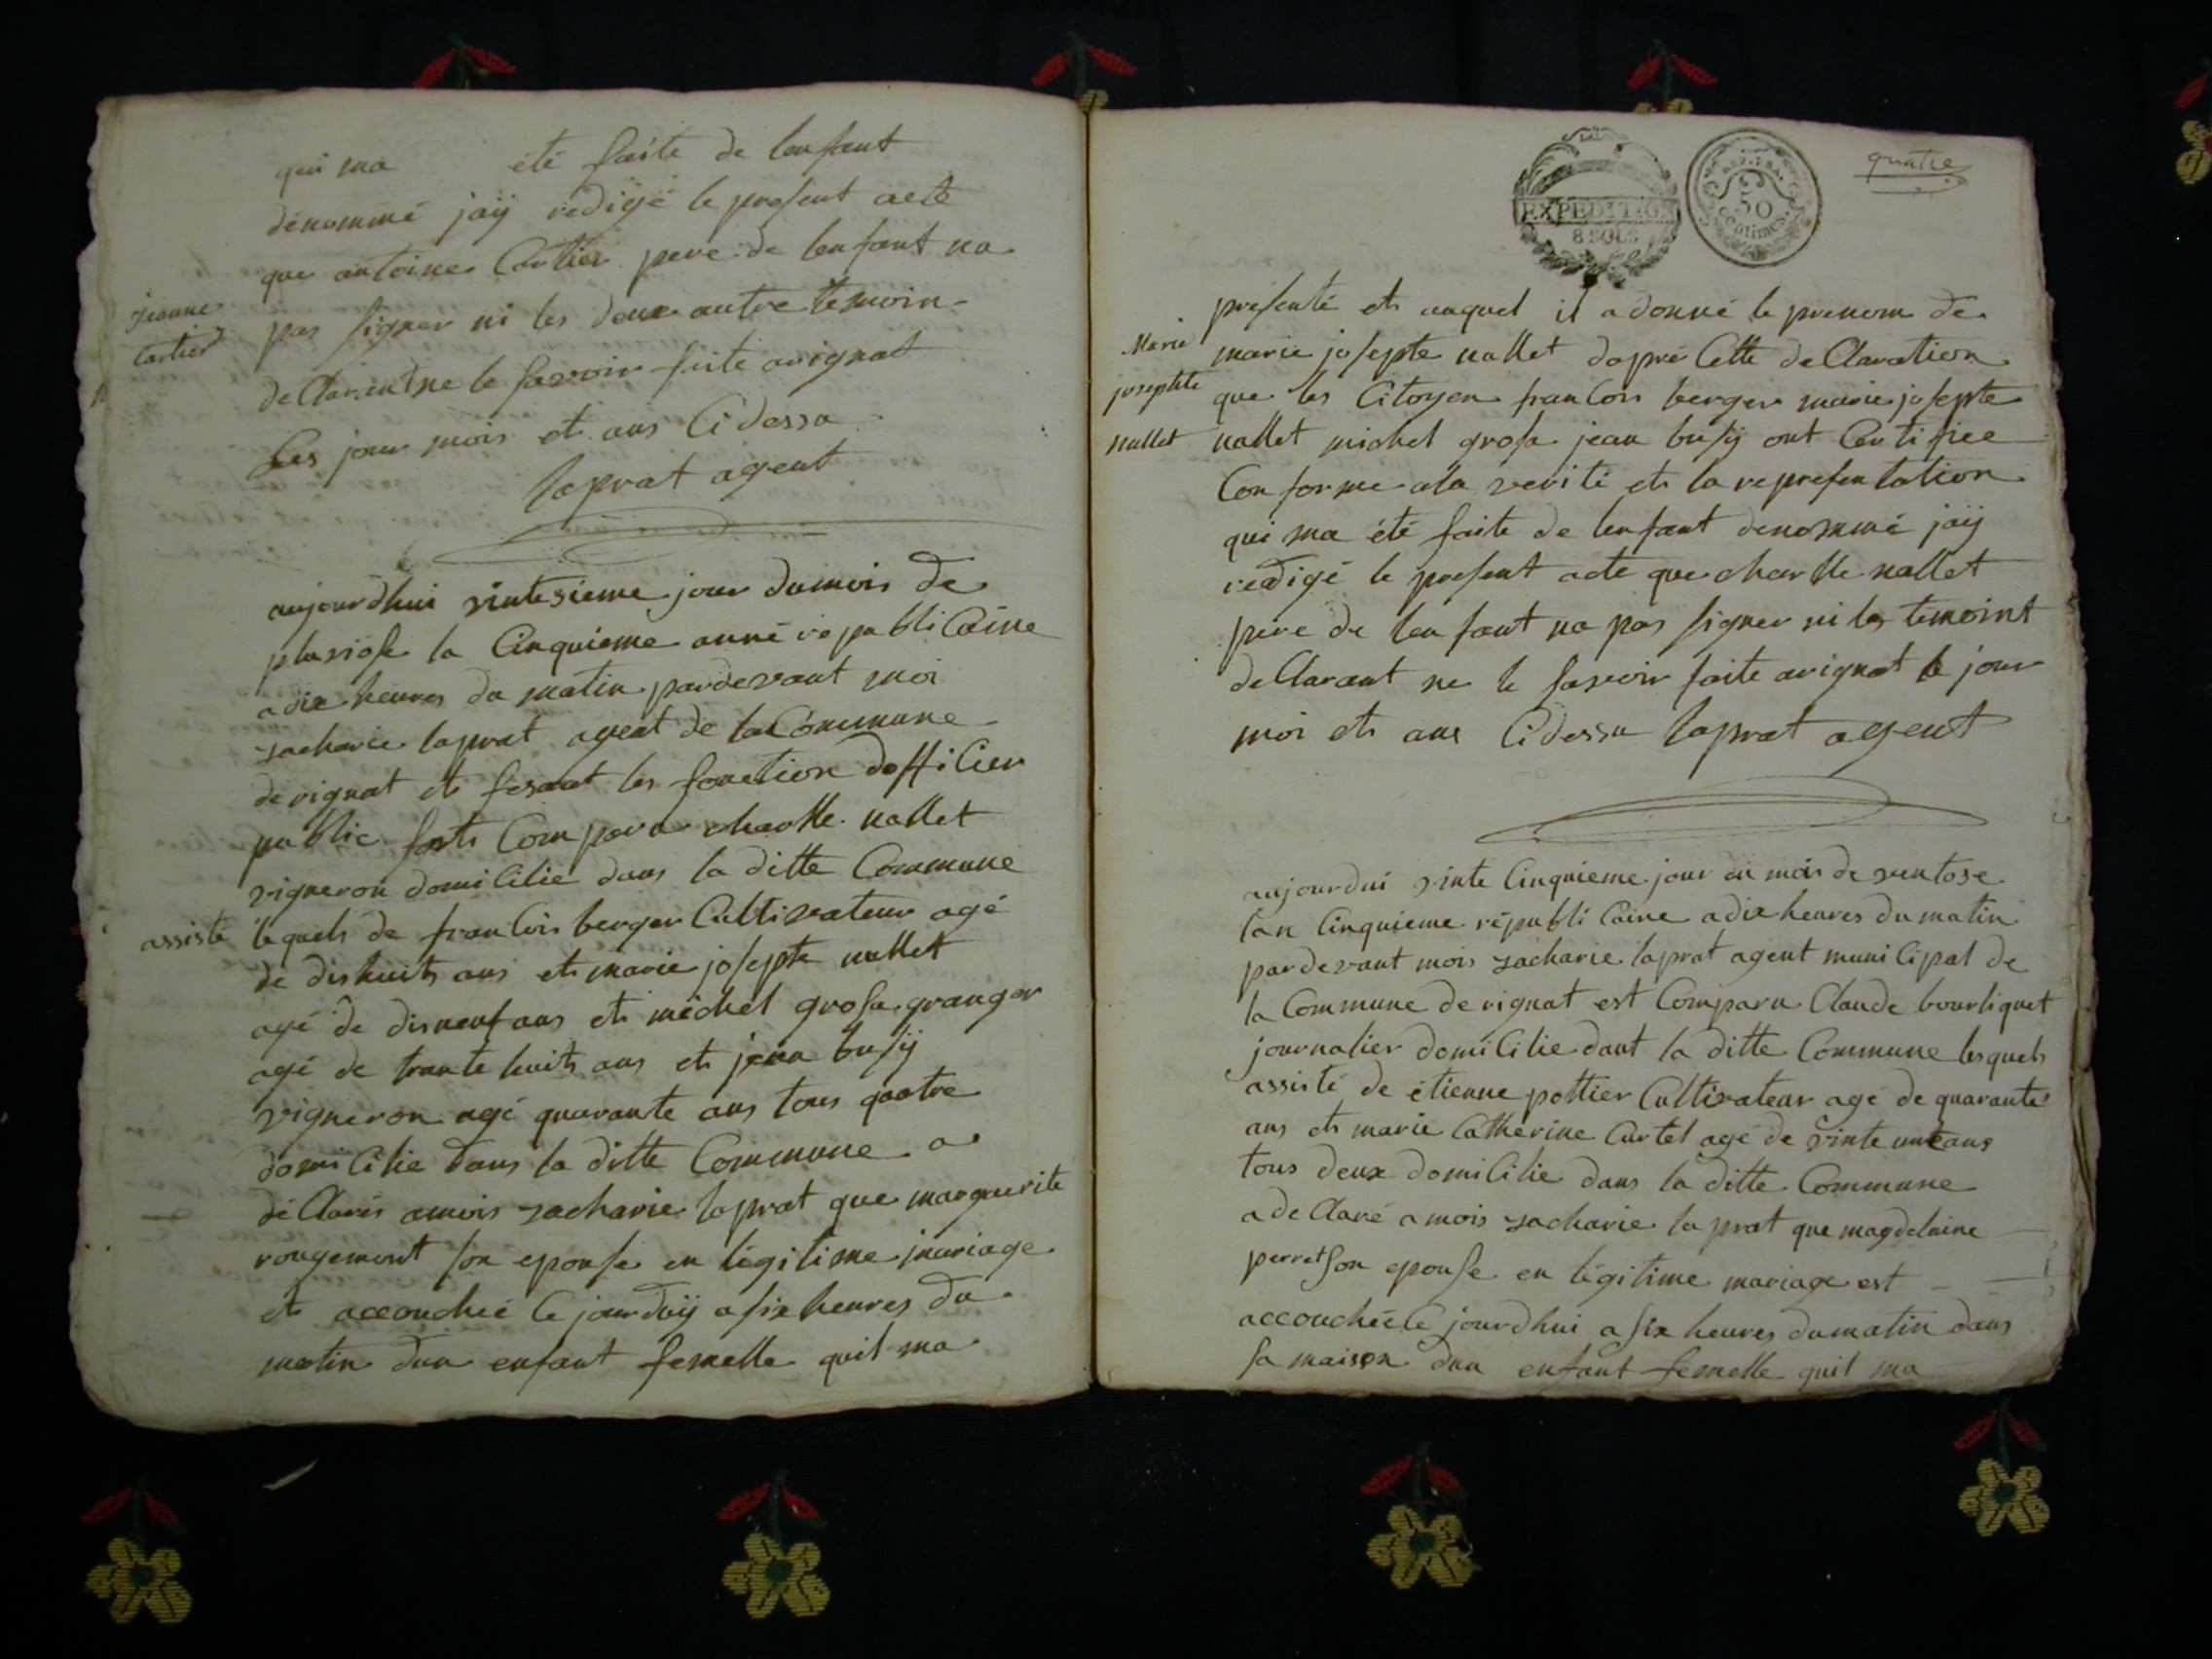 qui ma été faite de lenfant
dénommé jaÿ redigé le present acte
que antoine Cartier pere de lenfant na
jeanne
Cartier
pas signer ni les deux autre temoin
deClarent ne le savoir faite arignat
Les jour mois et ans Cidessu
laprat agent
aujourdhui vintesieme jour dumois de
pluviose la Cinquieme anné republiCaine
adix heures du matin pardevant moi
zacharie laprat agent de la Commune
derignat et fesant les fonction doffiCier
public sets Comparu charlle nallet
vigneron domiCilie dans la ditte Commune
assisté
lequels de franCois berger Cultivateur agé
de dishuits ans et marie josepte nallet
agé de disneuf ans et michel grosa granger
agé de trante huits ans et jean busÿ
vigneron agé quarante ans tous quatre
domiCilie dans la ditte Commune a
déClarés amois zacharie laprat que marguerite
rougemont son epouse en légitisme mariage
et accouchée Ce jourduÿ asix heures du
matin dun enfant femelle quil ma
EXPEDITION
8 SOLS
50
Centimes
quatre
presenté et auquel il a donné le prenom de
Marie
josephte
nallet
marie josepte nallet dapré Cette deClaration
que les Citoyen franCois berger marie josepte
nallet michel grosa jean busÿ ont Certifiee
Conforme ala verité et la representation
qui ma été faite de lenfant denommé jaÿ
redigé le present acte que charlle nallet
pere de lenfant na pas signer ni les temoint
deClarant ne le savoir faite arignat le jour
moi et ans Cidessu laprat agent
aujourdui vinte Cinquieme jour du mois de ventose
lan Cinquieme républiCaine adix heures du matin
pardevant mois zacharie laprat agent muniCipal de
la Commune de rignat est Comparu Claude bourliquet
journalier domiCilie dant la ditte Commune lesquels
assisté de étienne pottier Cultivateur agé de quarante
ans et marie Catherine Curtel agé de vinte unt ans
tous deux domiCilie dans la ditte Commune
a deClaré a mois zacharie laprat que magdelaine
perret son epouse en légitime mariage est
accouchée Ce jourdhui a six heures dumatin dans
sa maison dun enfant femelle quil ma